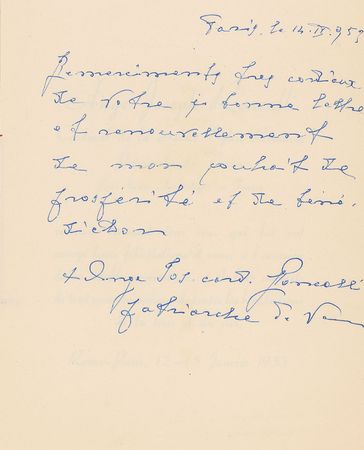 Paris, le 14. II. 953
Remerciments tres cordiaux
de votre si bonne lettre
et renouvellement
de mon souhait de
prosperité et de béné-
diction
+ Ange Jos. card. Roncalli
patriarche de